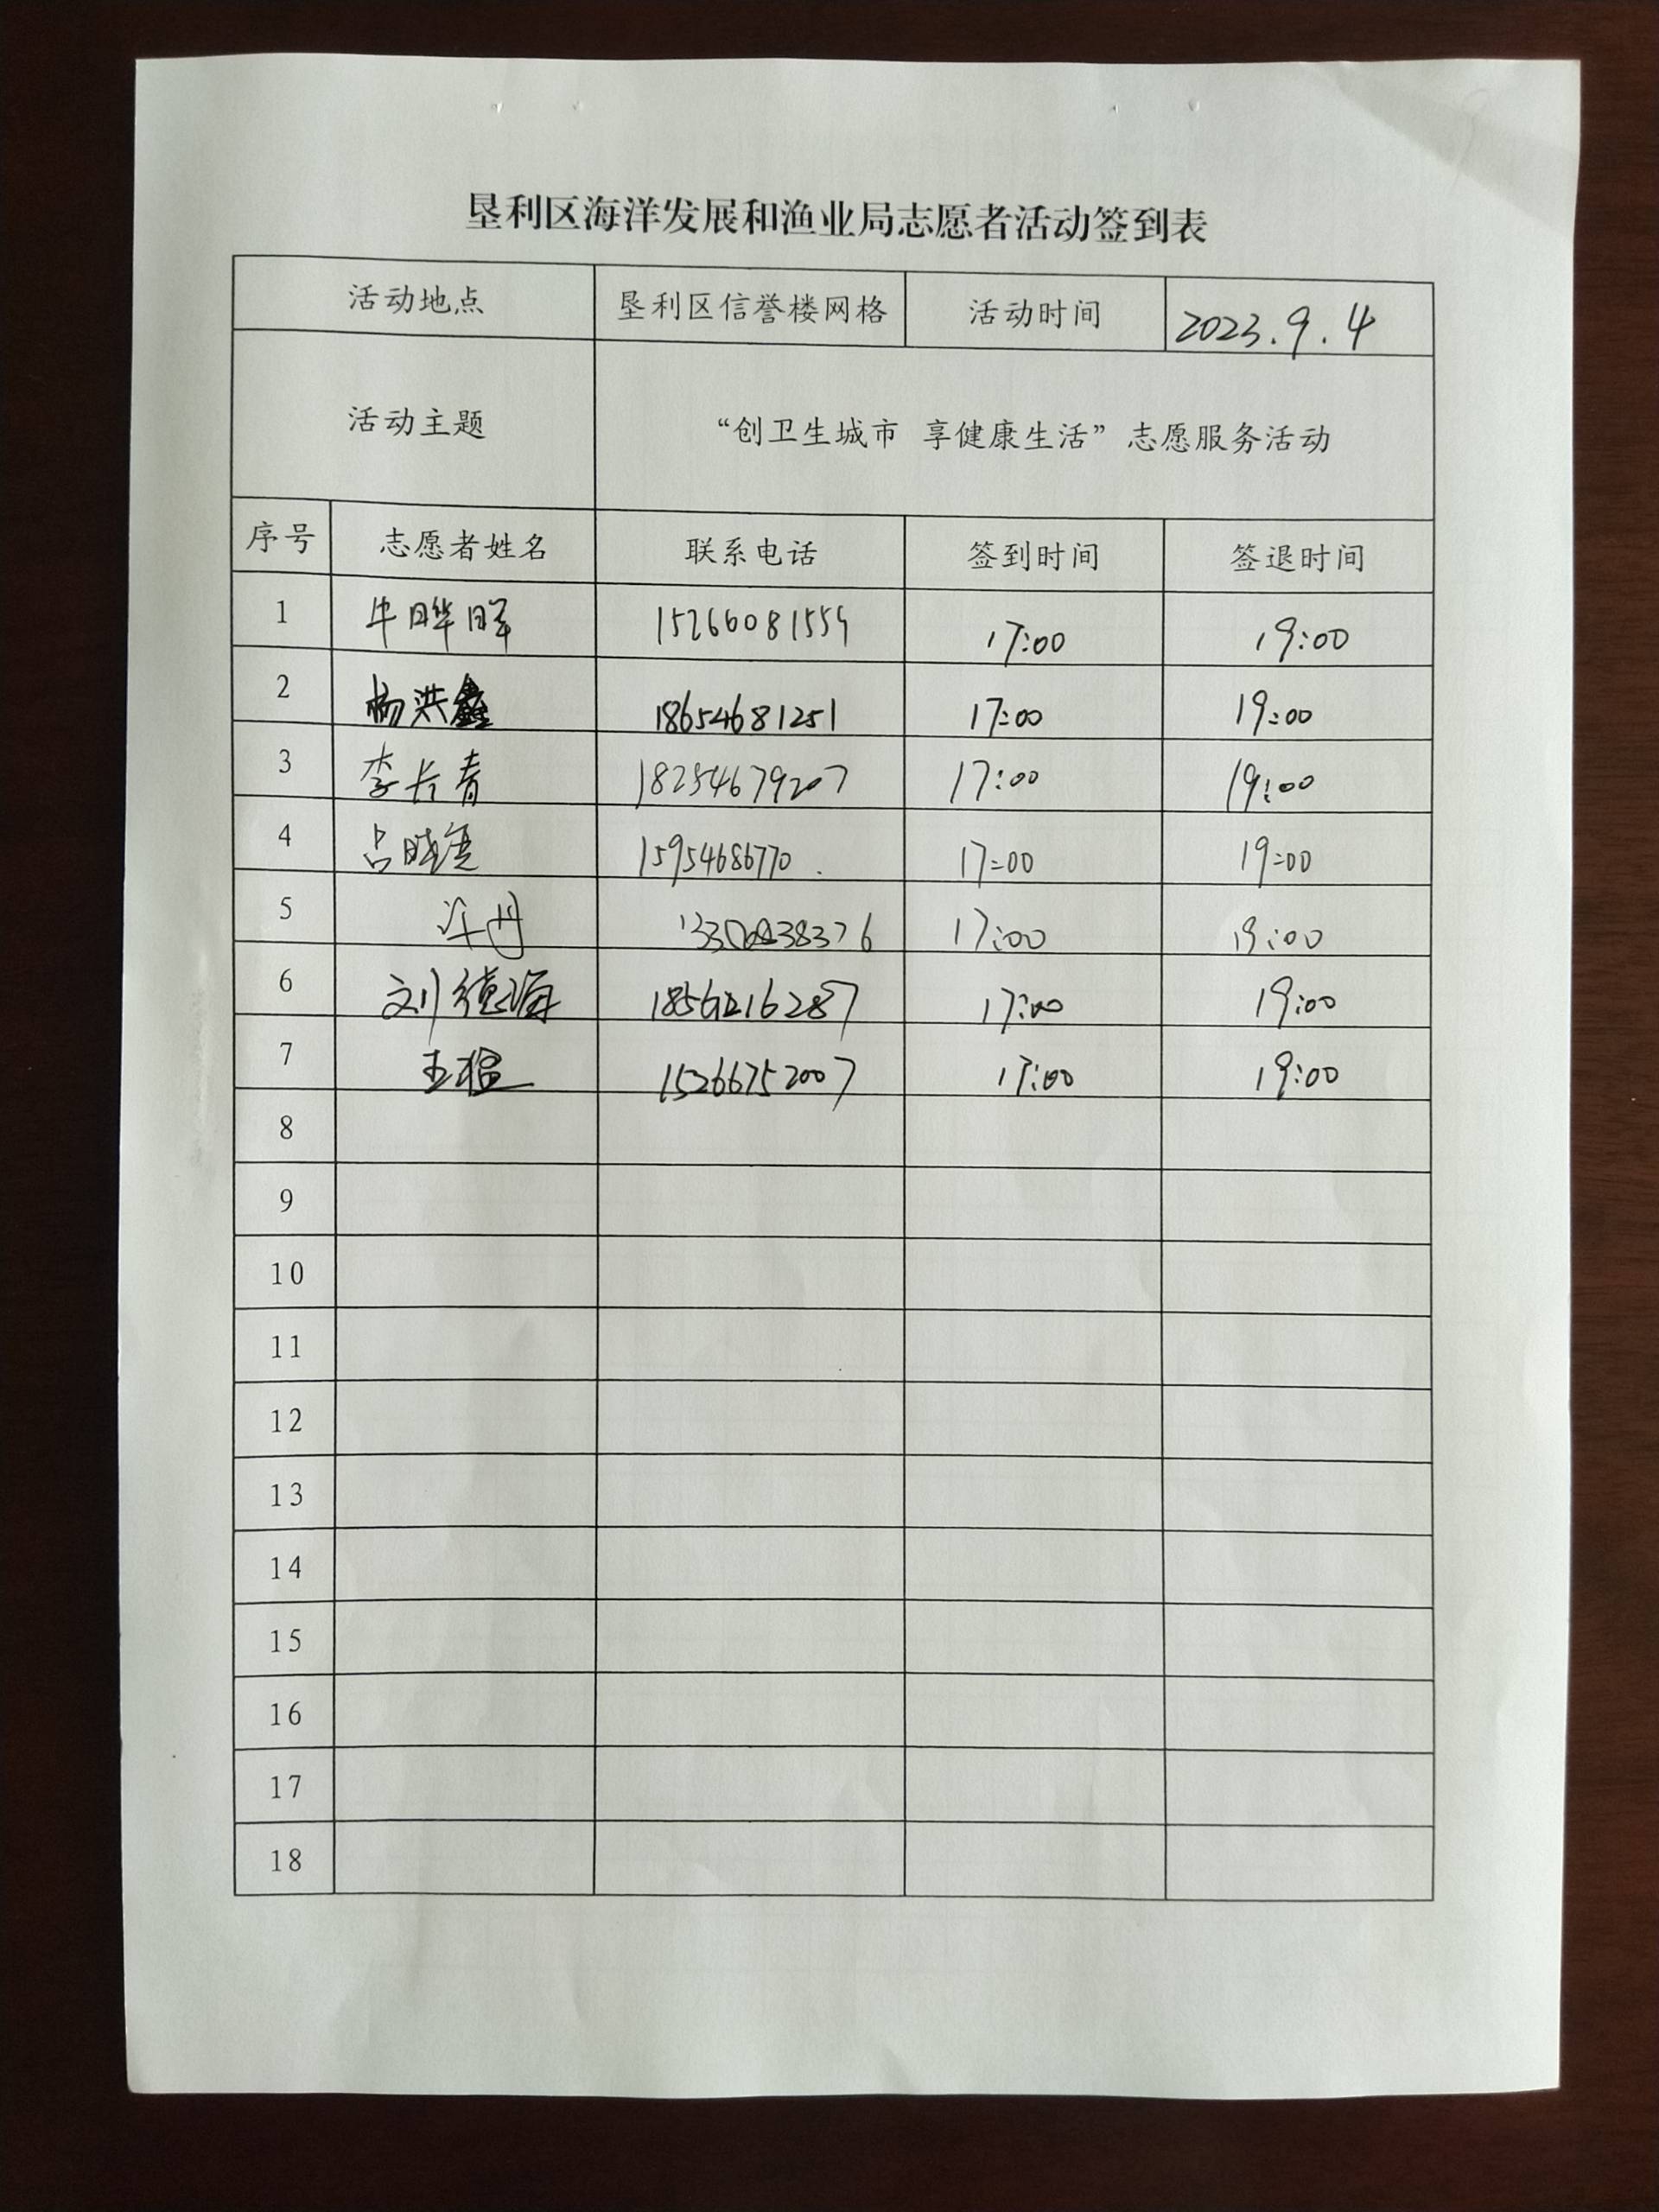 垦利区海洋发展和渔业局志愿者活动签到表
活动地点 垦利区信誉楼网格 活动时间 2023.9.4
活动主题 “创卫生城市 享健康生活”志愿服务活动
序号 志愿者姓名 联系电话 签到时间 签退时间
1 牛晔晖 15266081559 17:00 19:00
2 杨洪鑫 18654681251 17:00 19:00
3 李长青 18254679207 17:00 19:00
4 吕晓 15954686770 17:00 19:00
5 许丹 17:00 19:00
6 刘德海 17:00 19:00
7 王 15266752007 17:00 19:00
8
9
10
11
12
13
14
15
16
17
18